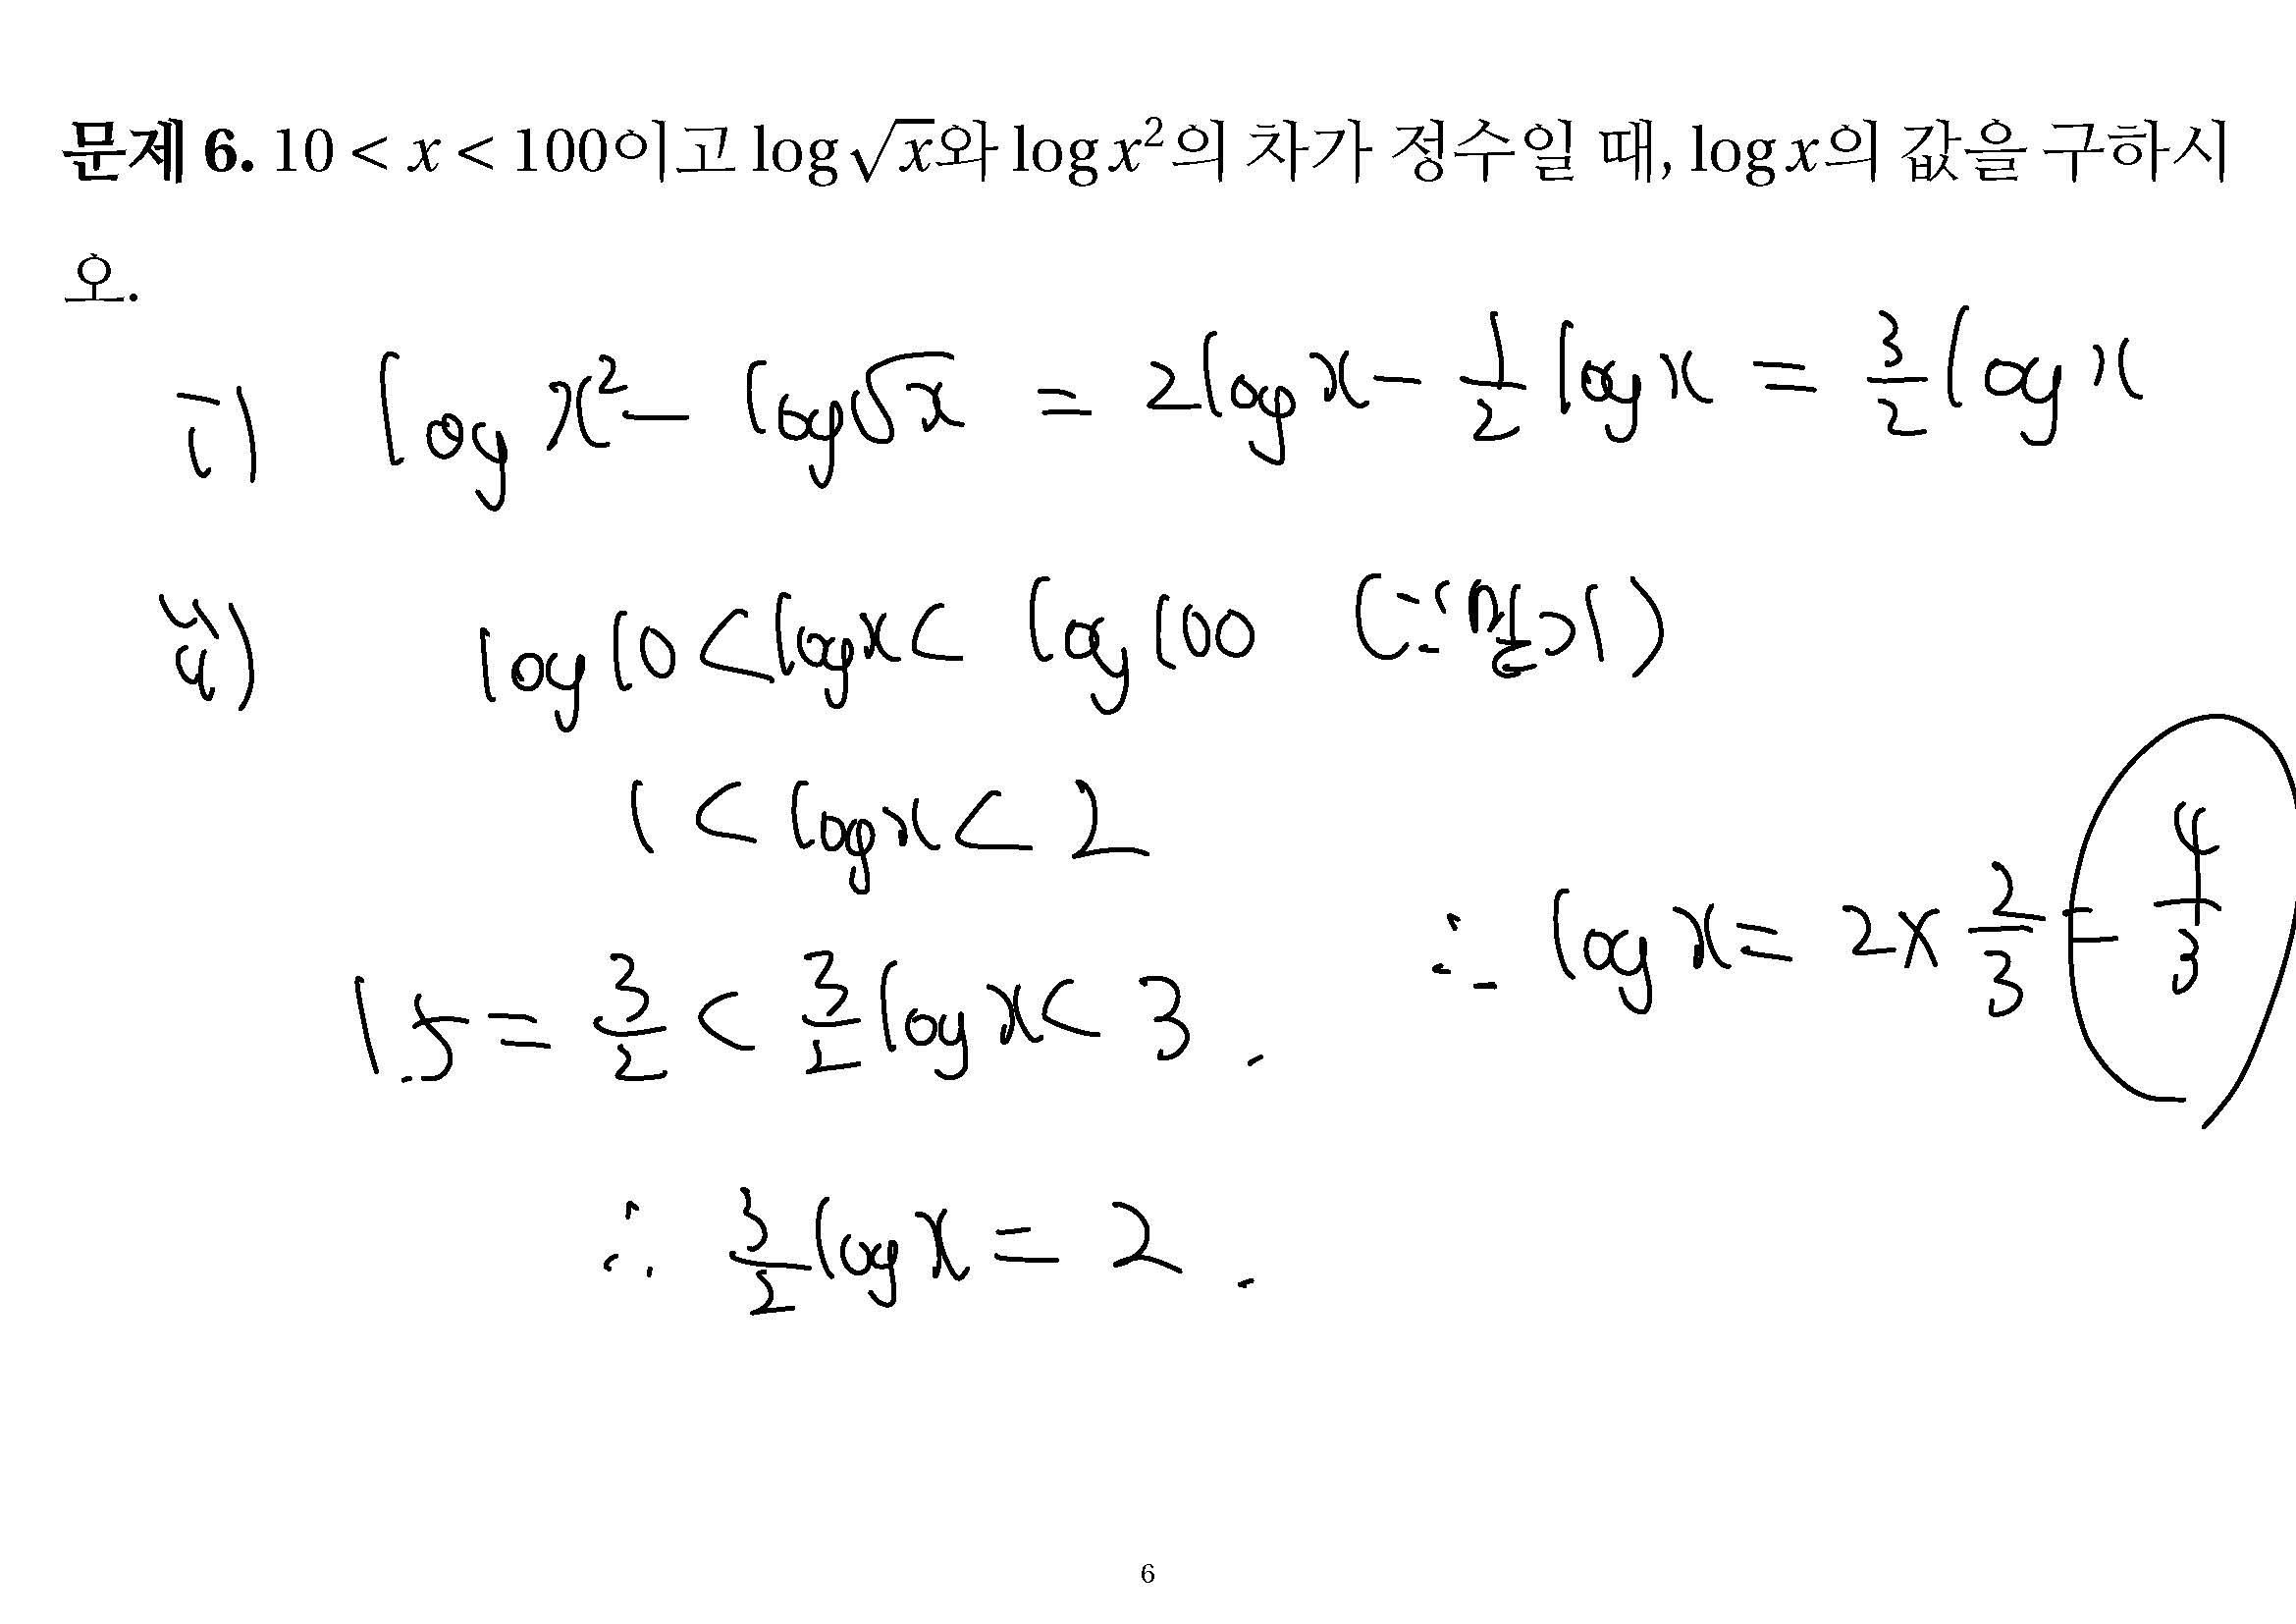 문제 6. 10 < x < 100이고 log √x와 log x²의 차가 정수일 때, log x의 값을 구하시
오.
i) log x² - log √x = 2log x - 1/2 log x = 3/2 log x
ii) log 10 < log x < log 100 (∵ 밑>1)
1 < log x < 2
1.5 = 3/2 < 3/2 log x < 3.
∴ 3/2 log x = 2.
∴ log x = 2 × 2/3 = 4/3
6